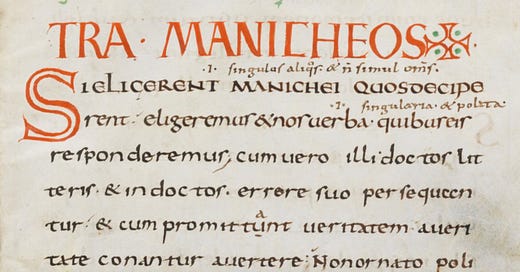 TRA · MANICHEOS
·I· singulos aliqs. & n simul oms.
SI ELIGERENT MANICHEI QUOS DECIPE
·I· singularia & polata
rent · eligeremus & nos verba · quibus eis
responderemus, cum vero illi doctos lit
teris · & indoctos · errore suo persequun
tur · & cum promittunt veritatem · a veri
a
tate conantur avertere · Non ornato poli